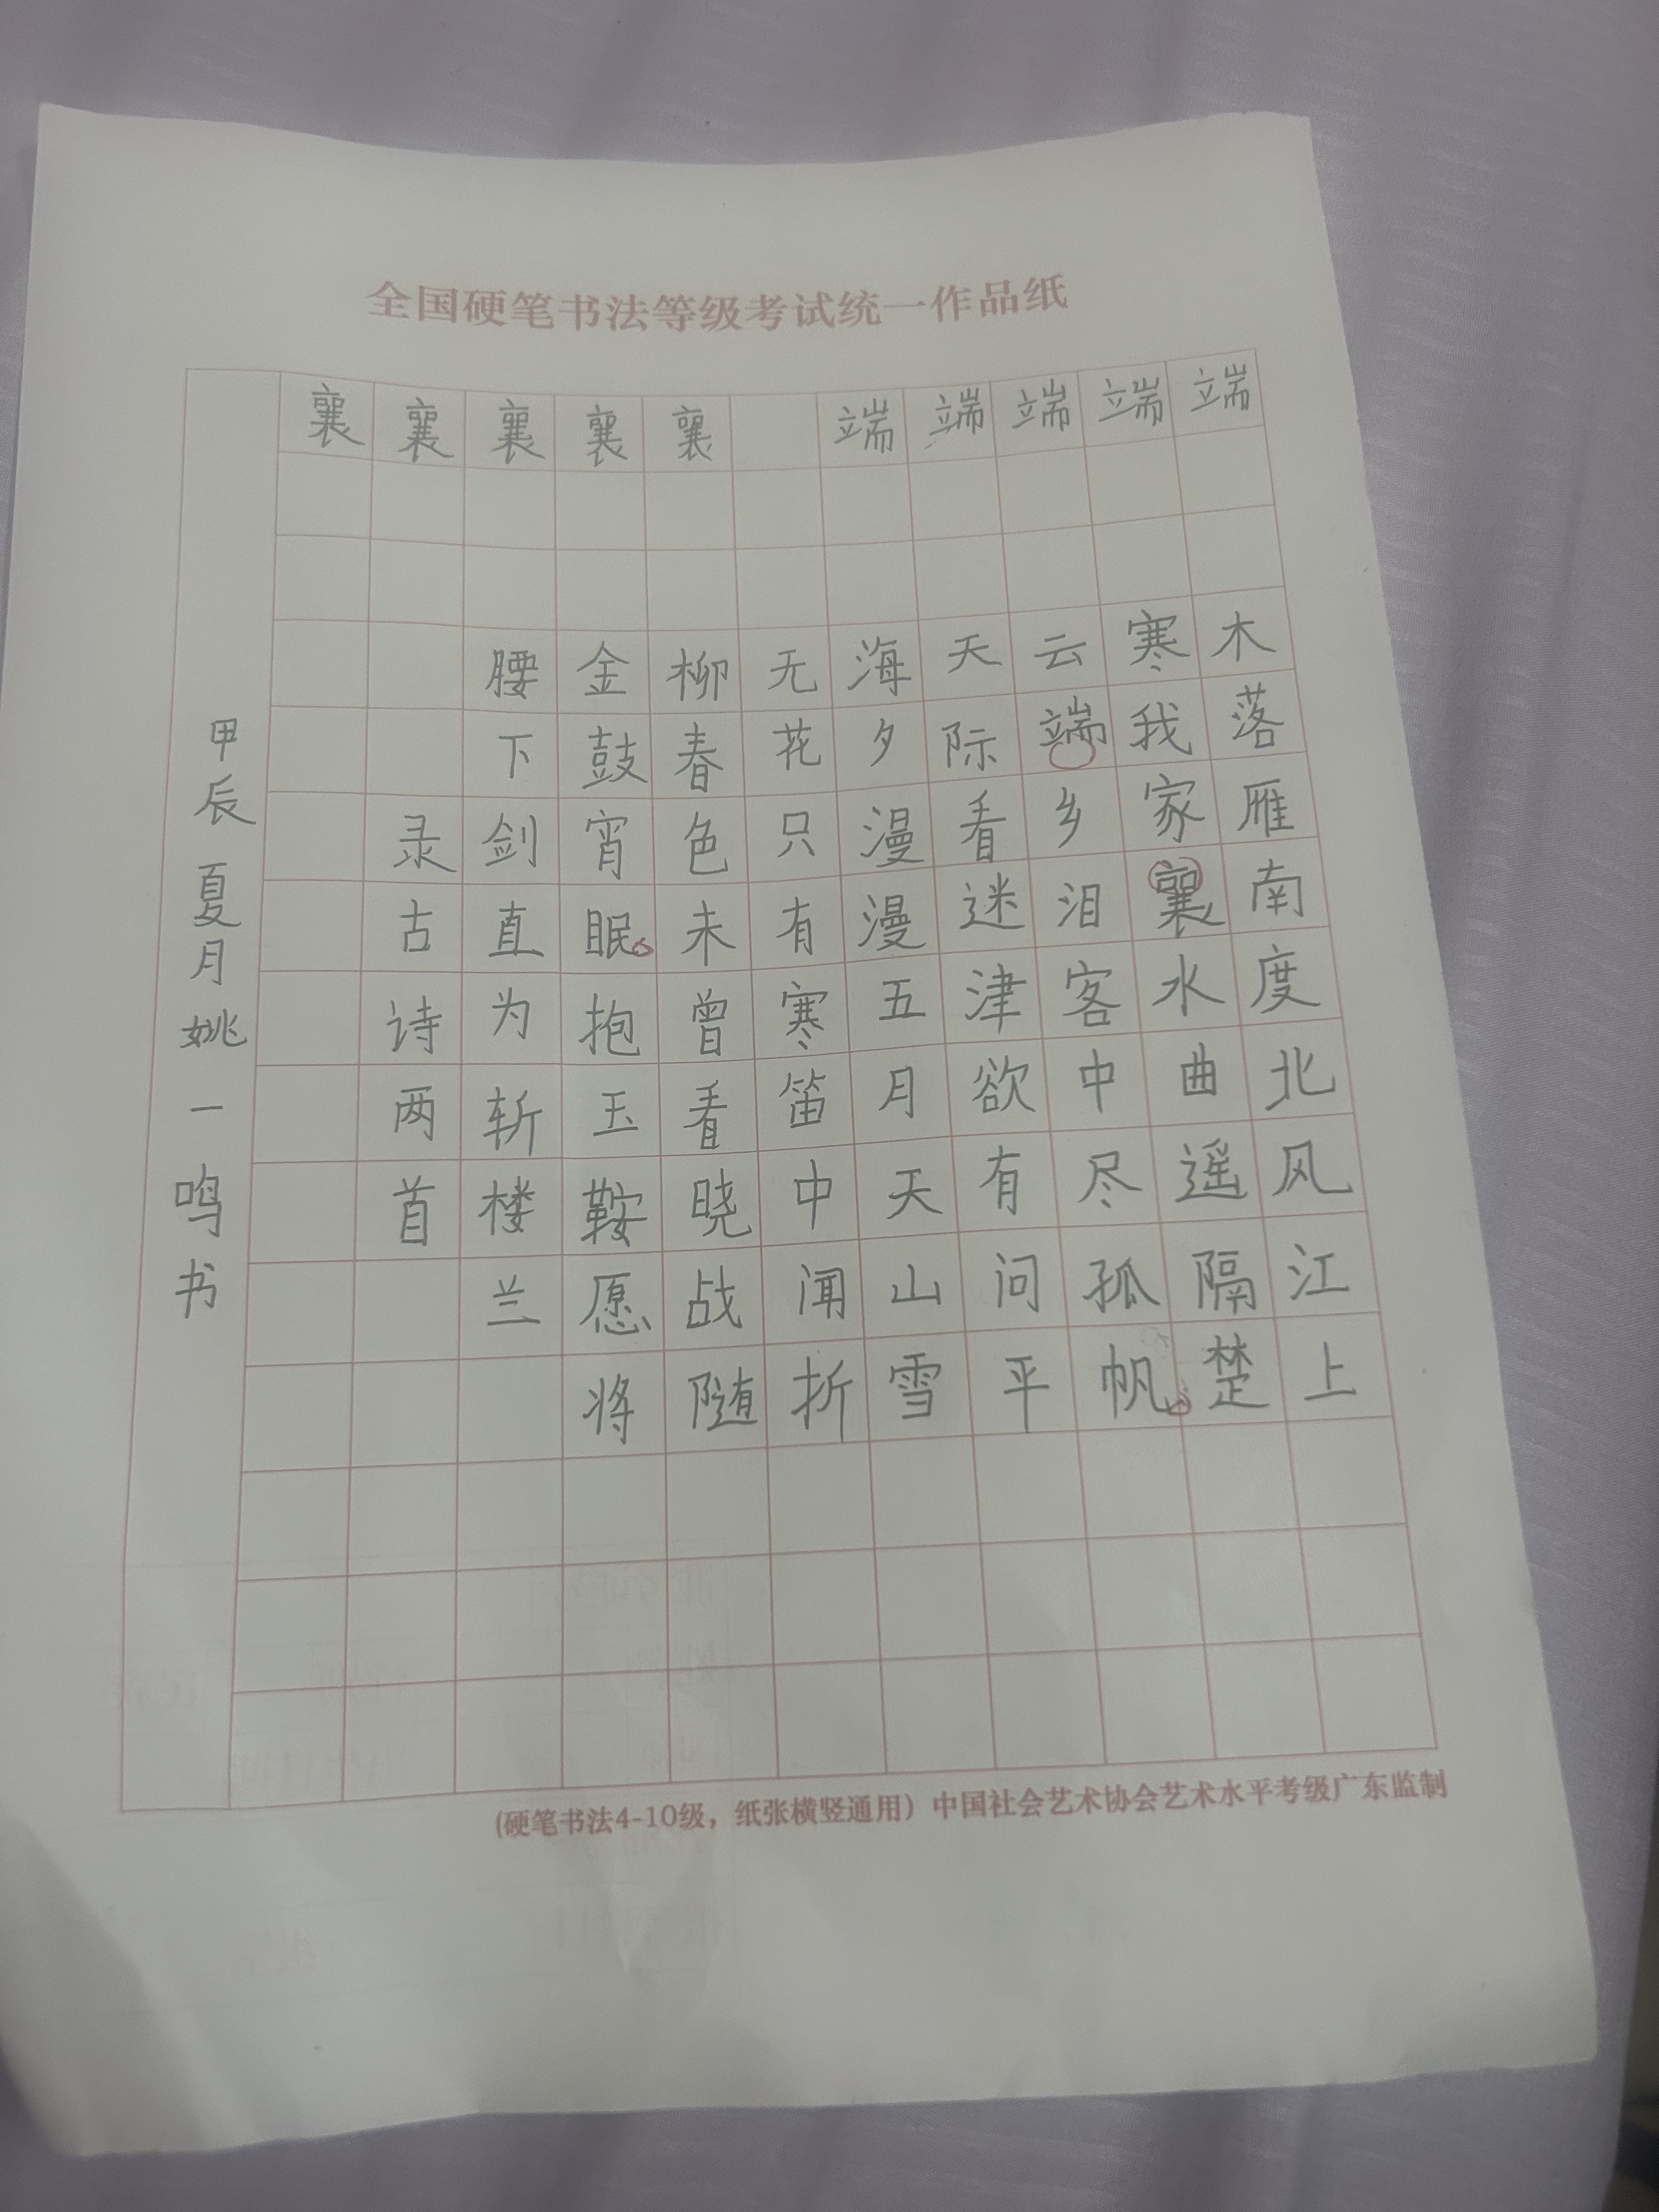 全国硬笔书法等级考试统一作品纸
端端端端端 襄襄襄襄襄
木落雁南度北风江上
寒我家襄水曲遥隔楚
云端乡泪客中尽孤帆
天际看迷津欲有问平
海夕漫漫五月天山雪
无花只有寒笛中闻折
柳春色未曾看晓战随
金鼓宵眠抱玉鞍愿将
腰下剑直为斩楼兰
录古诗两首
甲辰夏月姚一鸣书
(硬笔书法4-10级，纸张横竖通用）中国社会艺术协会艺术水平考级广东监制